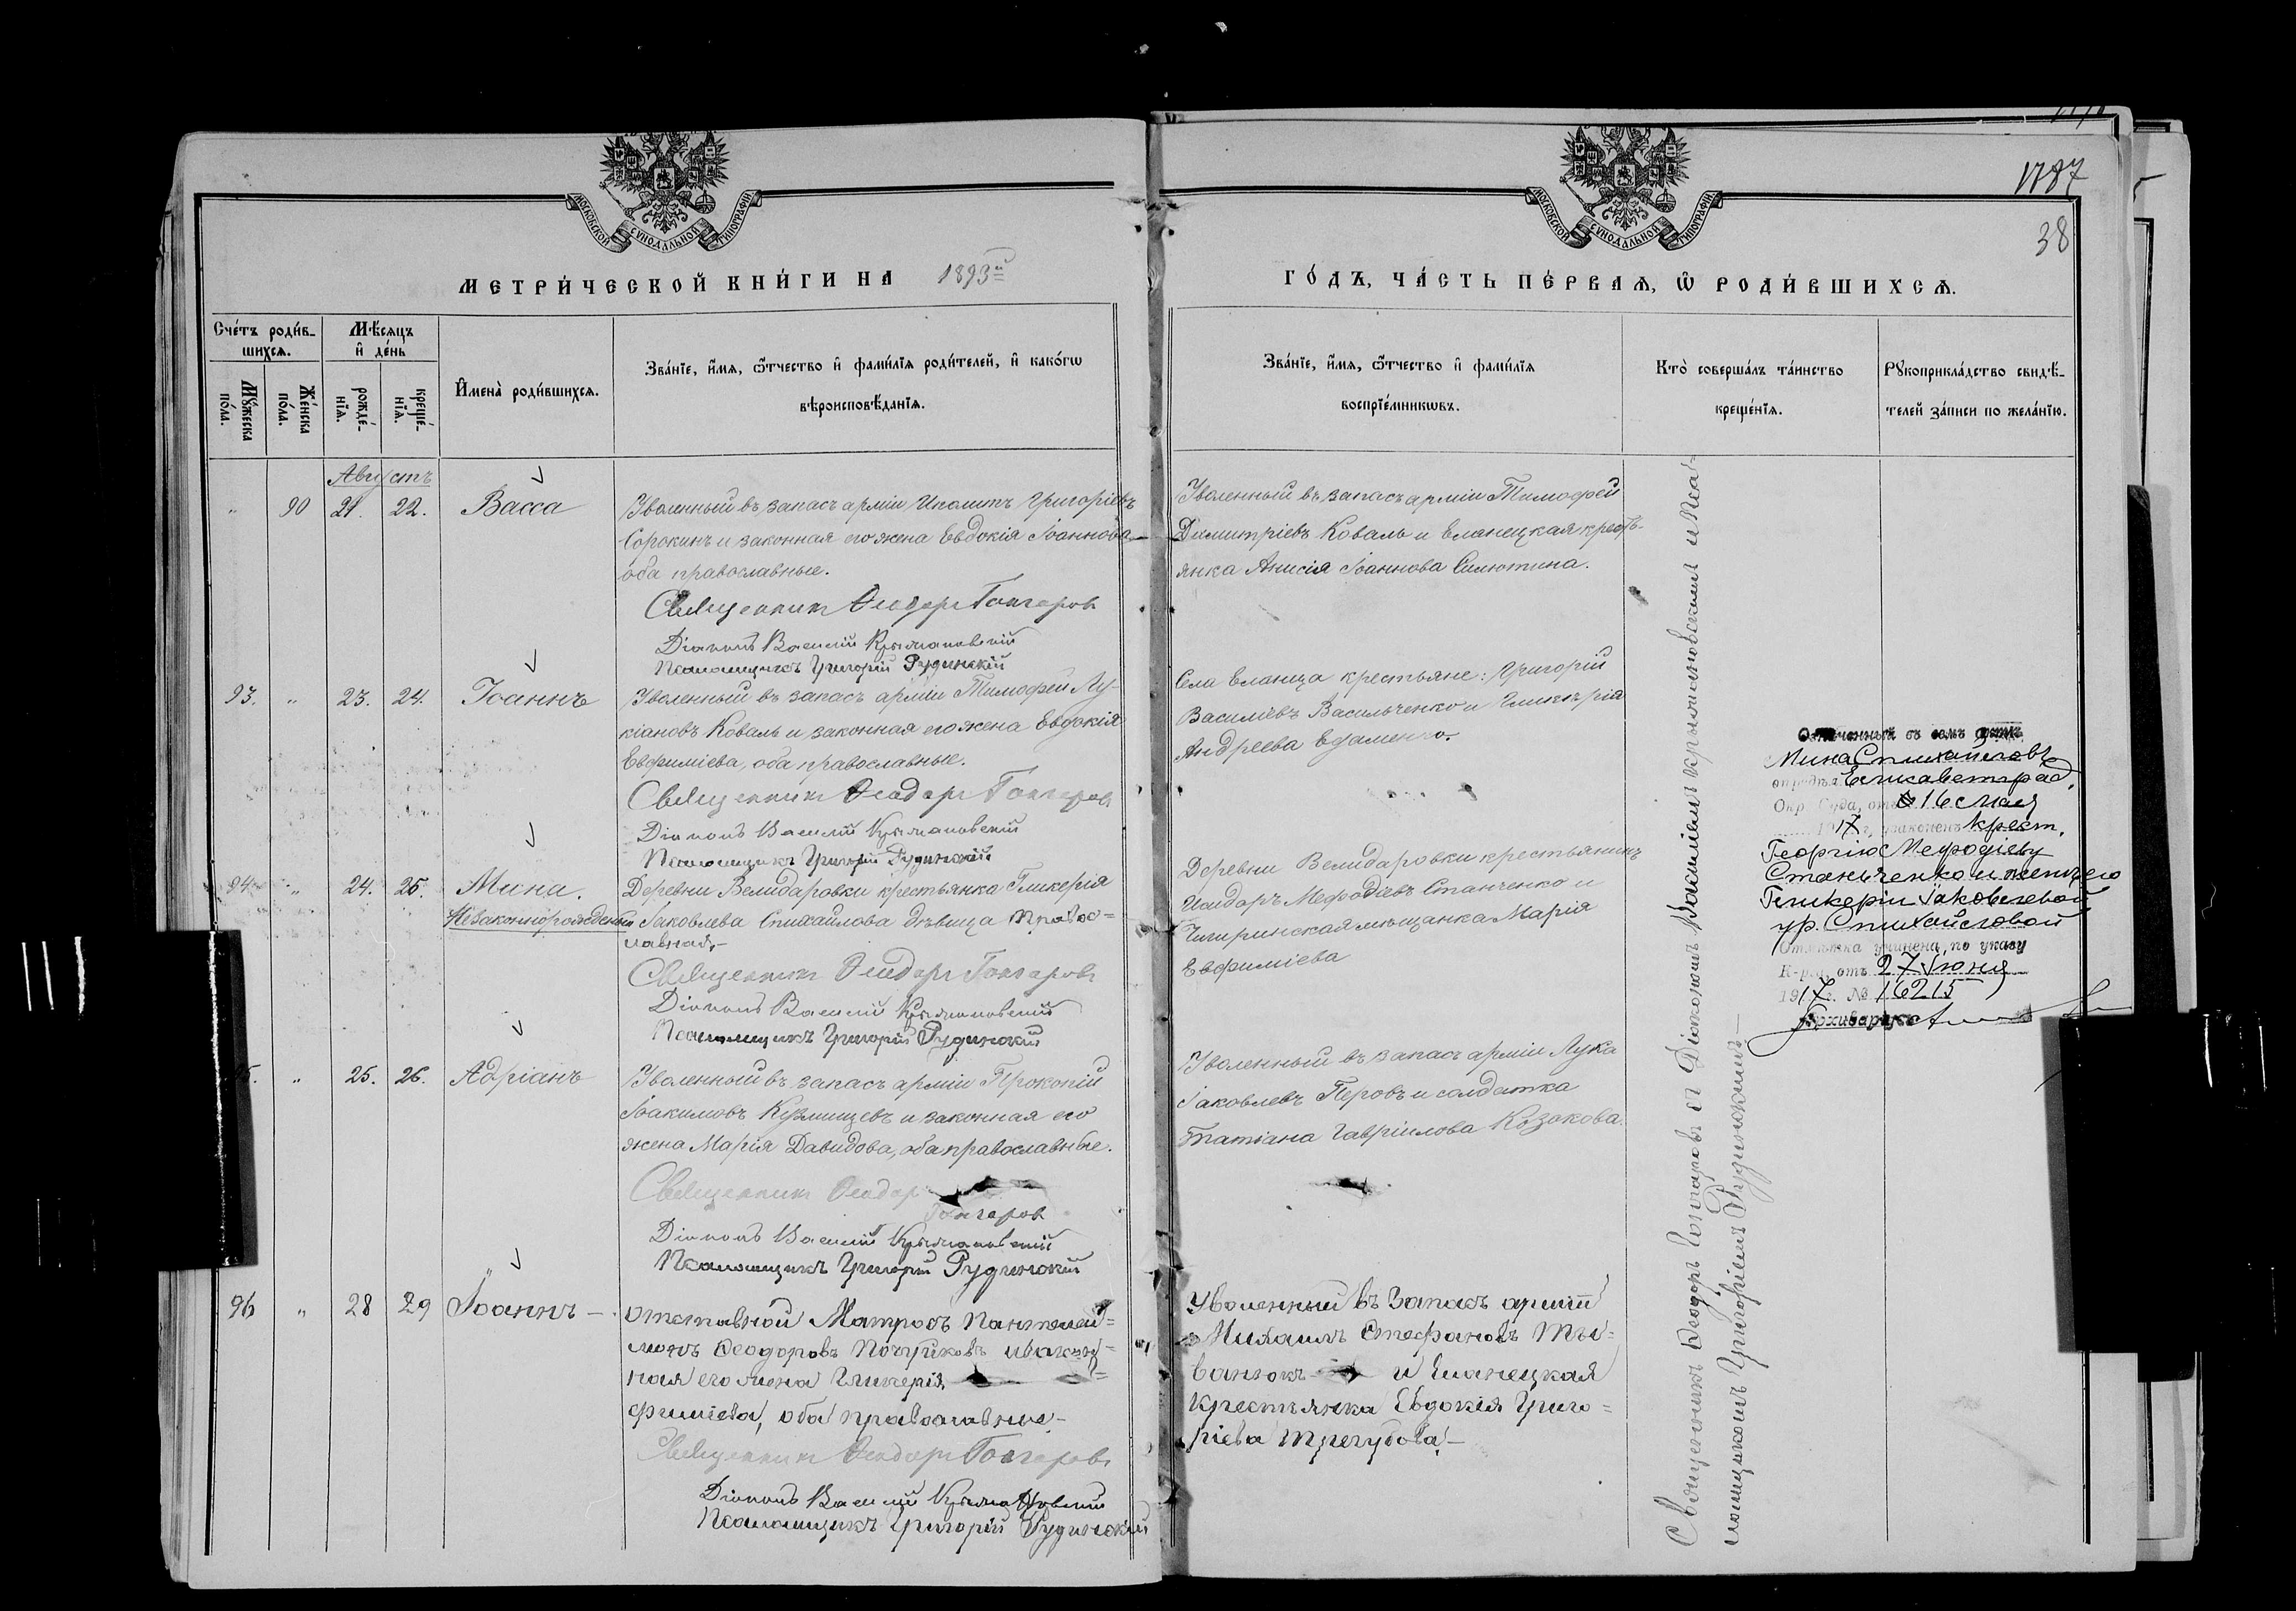 1787
38
МОСКОВСКОЙ СѴНОДАЛЬНОЙ ТИПОГРАФІИ
МОСКОВСКОЙ СѴНОДАЛЬНОЙ ТИПОГРАФІИ
МЕТРИ́ЧЕСКОЙ КНИ́ГИ НА 1893й
ГО́ДЪ, ЧА́СТЬ ПЕ́РВАѦ, Ѡ РОДИ́ВШИХСѦ.
Сче́тъ роди́в-
шихсѧ.
Мѣ́сѧцъ
и҆ де́нь
Мꙋ́жеска
по́ла.
Же́нска
по́ла.
рожде́-
нїѧ.
креще́-
нїѧ.
И҆мена̀ роди́вшихсѧ.
Зва́нїе, и҆́мѧ, ѻ҆́тчество и҆ фами́лїѧ роди́телей, и҆ како́гѡ
вѣроисповѣ́данїѧ.
Зва́нїе, и҆́мѧ, ѻ҆́тчество и҆ фами́лїѧ
воспрїе́мникѡвъ.
Кто̀ соверша́лъ та́инство
креще́нїѧ.
Рꙋкоприкла́дство свидѣ́-
телей за́писи по жела́нїю.
Августъ
" 90 21. 22. Васса
Уволенный въ запасъ арміи Иполитъ Григоріевъ
Сорокинъ и законная его жена Евдокія Іоаннова
оба православные.
Священник Ѳеодоръ Гончаров
Діаконъ Василій Крыжановскій
Псаломщикъ Григорій Рудинскій
Уволенный въ запасъ арміи Тимофей
Димитріевъ Коваль и Еланецкая кресть-
янка Анисія Іоаннова Силютина.
93. " 23. 24. Іоаннъ
Уволенный въ запасъ арміи Тимофей Лу-
кіановъ Коваль и законная его жена Евдокія
Евфиміева, оба православные.
Священник Ѳеодоръ Гончаров
Діаконъ Василій Крыжановскій
Псаломщикъ Григорій Рудинскій
Села Еланца крестьяне: Григорій
Василіевъ Васильченко и Гликерія
Андреева Адаменко.
94. " 24. 25. Мина.
Незаконнорожденный
Деревни Велидаровки крестьянка Гликерія
Іаковлева Спихайлова дѣвица право-
славная,-
Священник Ѳеодоръ Гончаров
Діаконъ Василій Крыжановскій
Псаломщикъ Григорій Рудинскій
Деревни Велидаровки крестьянинъ
Исидоръ Мефодіевъ Станченко и
Чигиринская мѣщанка Марія
Евфиміева
Означенный въ семъ актѣ
Мина Спихайловъ
опредѣл. Елисаветград.
Окр. Суда, отъ 16 Мая
1917 г., узаконенъ крест.
Георгію Мефодіеву
Станченко и женѣ его
Гликеріи Іаковлевой
ур. Спихайловой
Отмѣтка учинена, по указу
К-ріи, отъ 27 Іюня
1917 г. № 16215
Архиваріусъ
95. " 25. 26. Адріанъ
Уволенный въ запасъ арміи Прокопій
Іоакимовъ Кузмищевъ и законная его
жена Марія Давидова, оба православные.
Священник Ѳеодоръ
Гончаров
Діаконъ Василій Крыжановскій
Псаломщикъ Григорій Рудинскій
Уволенный въ запасъ арміи Лука
Іаковлевъ Перовъ и солдатка
Татіана Гавріилова Козакова.
96 " 28 29 Іоаннъ —
Отставной Матросъ Пантелей=
монъ Ѳеодоровъ Почуриковъ и закон=
ная его жена Гликерія
фиміева, оба православные.-
Священник Ѳеодоръ Гончаров
Діаконъ Василій Крыжановскій
Псаломщикъ Григорій Рудинскій
Уволенный въ запасъ арміи
Михаилъ Стефановъ
и Еланецкая
крестьянка Евдокія Григо=
ріева Трегубова.-
Священникъ Ѳеодоръ Гончаровъ съ Діакономъ Василіемъ Крыжановскимъ и Пса-
ломщикомъ Григоріемъ Рудинскимъ.—